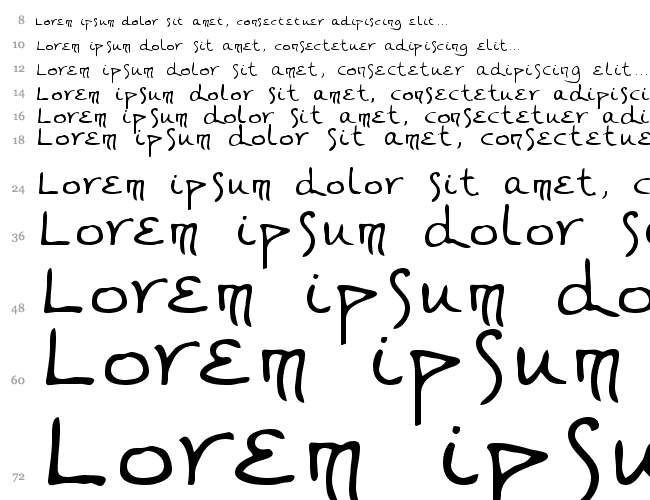 8 Lorem ipsum dolor sit amet, consectetuer adipiscing elit...
10 Lorem ipsum dolor sit amet, consectetuer adipiscing elit...
12 Lorem ipsum dolor sit amet, consectetuer adipiscing elit...
14 Lorem ipsum dolor sit amet, consectetuer adipisci
16 Lorem ipsum dolor sit amet, consectetuer adi
18 Lorem ipsum dolor sit amet, consectetue
24 Lorem ipsum dolor sit amet, c
36 Lorem ipsum dolor s
48 Lorem ipsum do
60 Lorem ipsum
72 Lorem ipsu